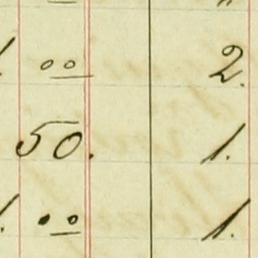 00 2.
50. 1.
00 1.